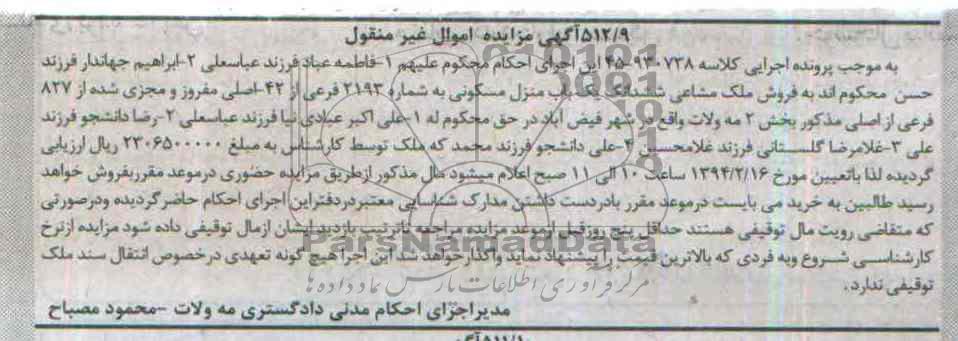 ۵۱۲/۹آگهی مزایده اموال غیر منقول
به موجب پرونده اجرایی کلاسه ۹۳۰۷۳۸-۴۵ این اجرای احکام محکوم علیهم ۱-فاطمه عباد فرزند عباسعلی ۲-ابراهیم جهاندار فرزند
حسن محکوم اند به فروش ملک مشاعی ششدانگ یک باب منزل مسکونی به شماره ۲۱۹۳ فرعی از ۴۲-اصلی مفروز و مجزی شده از ۸۲۷
فرعی از اصلی مذکور بخش ۲ مه ولات واقع در شهر فیض آباد در حق محکوم له ۱-علی اکبر عبادی نیا فرزند عباسعلی ۲-رضا دانشجو فرزند
علی ۳-غلامرضا گلستانی فرزند غلامحسین ۴-علی دانشجو فرزند محمد که ملک توسط کارشناس به مبلغ ۲۳۰۶۵۰۰۰۰۰ ریال ارزیابی
گردیده لذا باتعیین مورخ ۱۳۹۴/۲/۱۶ ساعت ۱۰ الی ۱۱ صبح اعلام میشود مال مذکور ازطریق مزایده حضوری درموعد مقرربفروش خواهد
رسید طالبین به خرید می بایست درموعد مقرر بادردست داشتن مدارک شناسایی معتبردردفتراین اجرای احکام حاضرگردیده ودرصورتی
که متقاضی رویت مال توقیفی هستند حداقل پنج روزقبل ازموعد مزایده مراجعه تاترتیب بازدیدایشان ازمال توقیفی داده شود مزایده ازنرخ
کارشناسی شروع وبه فردی که بالاترین قیمت را پیشنهاد نماید واگذارخواهد شد این اجرا هیچ گونه تعهدی درخصوص انتقال سند ملک
توقیفی ندارد.
مدیراجرای احکام مدنی دادگستری مه ولات -محمود مصباح
ParsNamadData
مرکز فرآوری اطلاعات پارس نماد داده ها